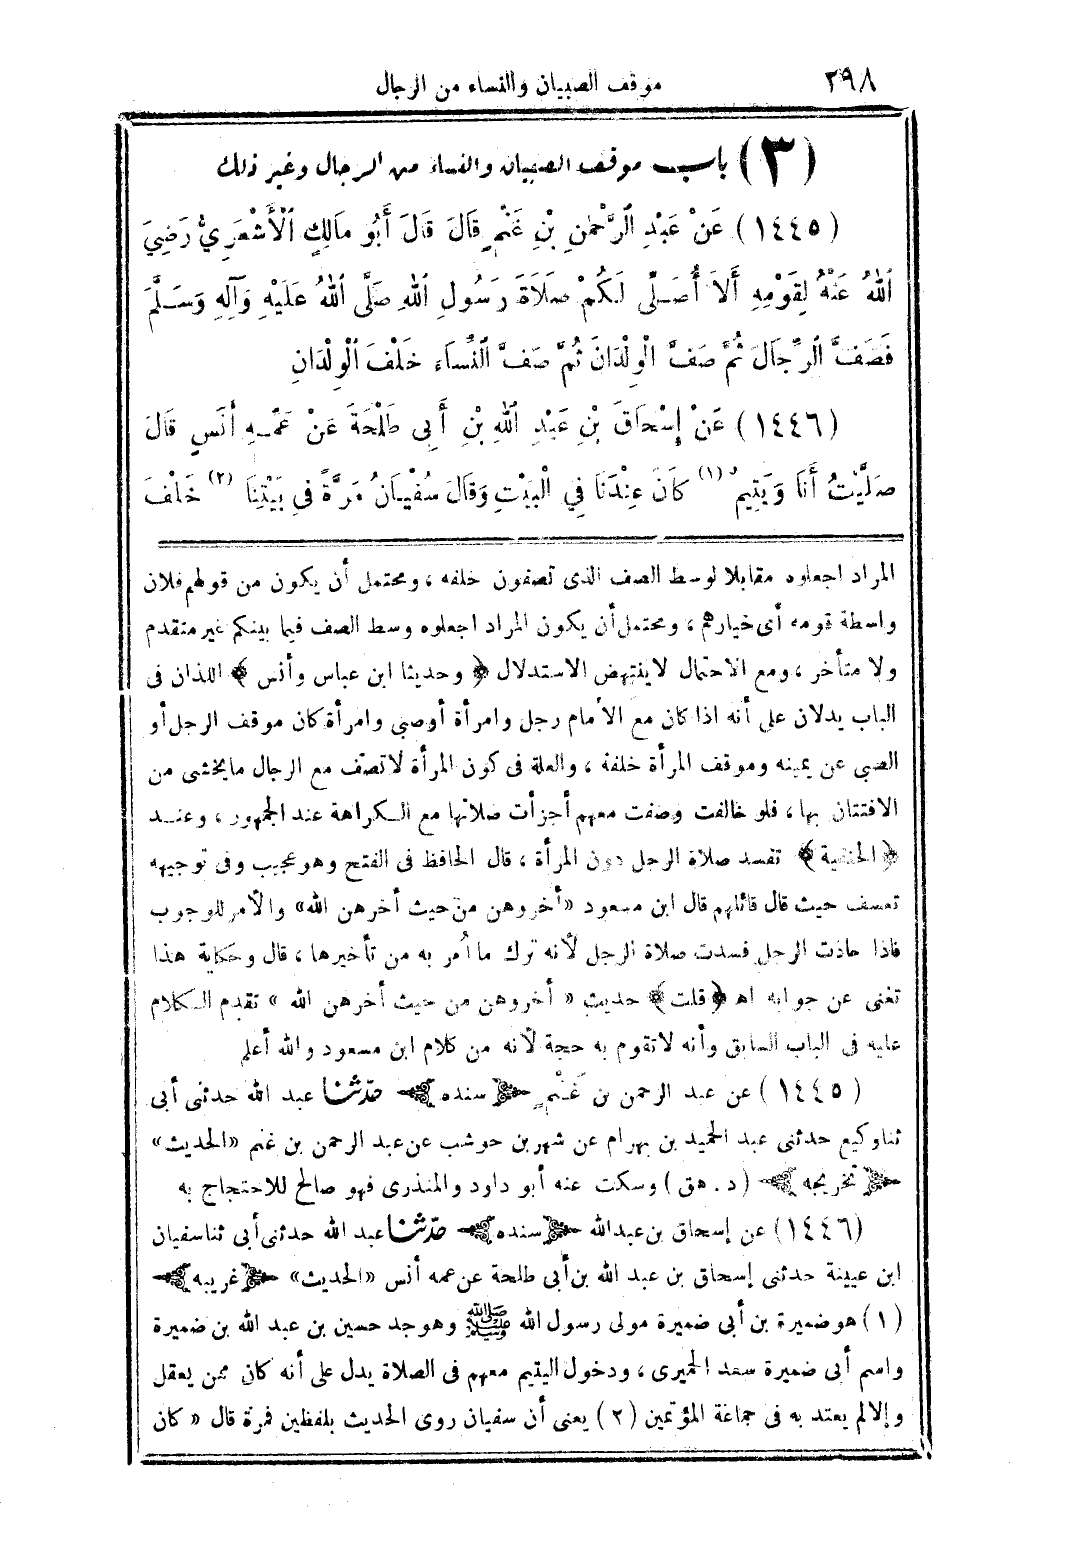 ٢٩٨
موقف الصبيان والنساء من الرجال
(٣) باب موقف الصبيان والنساء من الرجال وغير ذلك
(١٤٤٥) عَنْ عَبْدِ الرَّحْمٰنِ بْنِ غَنْمٍ قَالَ قَالَ أَبُو مَالِكٍ الْأَشْعَرِيُّ رَضِيَ
اللهُ عَنْهُ لِقَوْمِهِ أَلَا أُصَلِّى لَكُمْ صَلَاةَ رَسُولِ اللهِ صَلَّى اللهُ عَلَيْهِ وَآلِهِ وَسَلَّمَ
فَصَفَّ الرِّجَالَ ثُمَّ صَفَّ الْوِلْدَانَ ثُمَّ صَفَّ النِّسَاءَ خَلْفَ الْوِلْدَانِ
(١٤٤٦) عَنْ إِسْحَاقَ بْنِ عَبْدِ اللهِ بْنِ أَبِى طَلْحَةَ عَنْ عَمِّهِ أَنَسٍ قَالَ
صَلَّيْتُ أَنَا وَيَتِيمٌ (١) كَانَ عِنْدَنَا فِي الْبَيْتِ وَقَالَ سُفْيَانُ مَرَّةً فِي بَيْتِنَا (٢) خَلْفَ
المراد اجعلوه مقابلا لوسط الصف الذى تصفون خلفه ، ومحتمل أن يكون من قولهم فلان
واسطة قومه أى خيارهم ، ومحتمل أن يكون المراد اجعلوه وسط الصف فيما بينكم غير متقدم
ولا متأخر ، ومع الاحتمال لا ينتهض الاستدلال ﴿ وحديثا ابن عباس وأنس ﴾ اللذان فى
الباب يدلان على أنه اذا كان مع الأمام رجل وامرأة أوصبى وامرأة كان موقف الرجل أو
الصبى عن يمينه وموقف المرأة خلفه ، والعلة فى كون المرأة لا تصف مع الرجال ما يخشى من
الافتتان بها ، فلو خالفت وصفت معهم أجزأت صلاتها مع الكراهة عند الجمهور ، وعند
﴿ الحنفية ﴾ تفسد صلاة الرجل دون المرأة ، قال الحافظ فى الفتح وهو عجيب وفى توجيهه
تعسف حيث قال قائلهم قال ابن مسعود «أخروهن من حيث أخرهن الله» والأمر للوجوب
فاذا حاذت الرجل فسدت صلاة الرجل لأنه ترك ما أمر به من تأخيرها ، قال وحكاية هذا
تغنى عن جوابه اهـ ﴿ قلت ﴾ حديث « أخروهن من حيث أخرهن الله » تقدم الكلام
عليه فى الباب السابق وأنه لا تقوم به حجة لأنه من كلام ابن مسعود والله أعلم
(١٤٤٥) عن عبد الرحمن بن غَنْمٍ سنده حدّثنا عبد الله حدثنى أبى
ثنا وكيع حدثنى عبد الحميد بن بهرام عن شهر بن حوشب عن عبد الرحمن بن غنم «الحديث»
تخريجه (د . هق) وسكت عنه أبو داود والمنذرى فهو صالح للاحتجاج به
(١٤٤٦) عن إسحاق بن عبد الله سنده حدّثنا عبد الله حدثنى أبى ثنا سفيان
ابن عيينة حدثنى إسحاق بن عبد الله بن أبى طلحة عن عمه أنس «الحديث» غريبه
(١) هو ضميرة بن أبى ضميرة مولى رسول الله ﷺ وهو جد حسين بن عبد الله بن ضميرة
واسم أبى ضميرة سعد الحميرى ، ودخول اليتيم معهم فى الصلاة يدل على أنه كان ممن يعقل
وإلا لم يعتد به فى جماعة المؤتمين (٢) يعنى أن سفيان روى الحديث بلفظين فمرة قال « كان